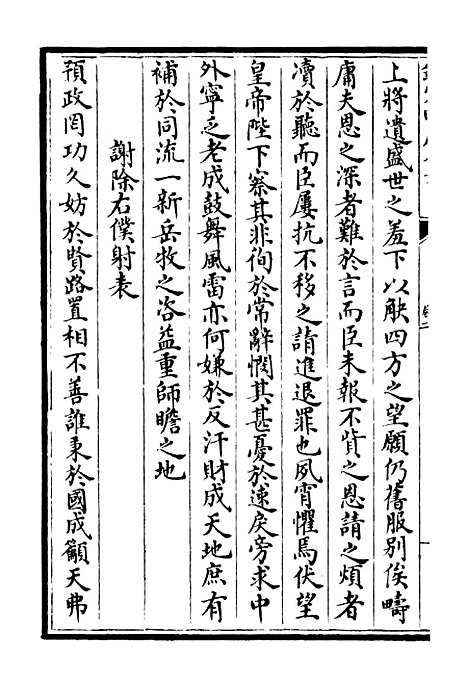 上將遺盛世之羞下以觖四方之望願仍舊服別俟疇
庸夫恩之深者難於言而臣未報不貲之恩請之煩者
瀆於聽而臣屢抗不移之請進退罪也夙宵懼焉伏望
皇帝陛下察其非徇於常辭憫其甚憂於速戾旁求中
外寧乏老成鼓舞風雷亦何嫌於反汗財成天地庶有
補於同流一新岳牧之咨益重師瞻之地
謝除右僕射表
預政罔功久妨於賢路置相不善誰秉於國成籲天弗